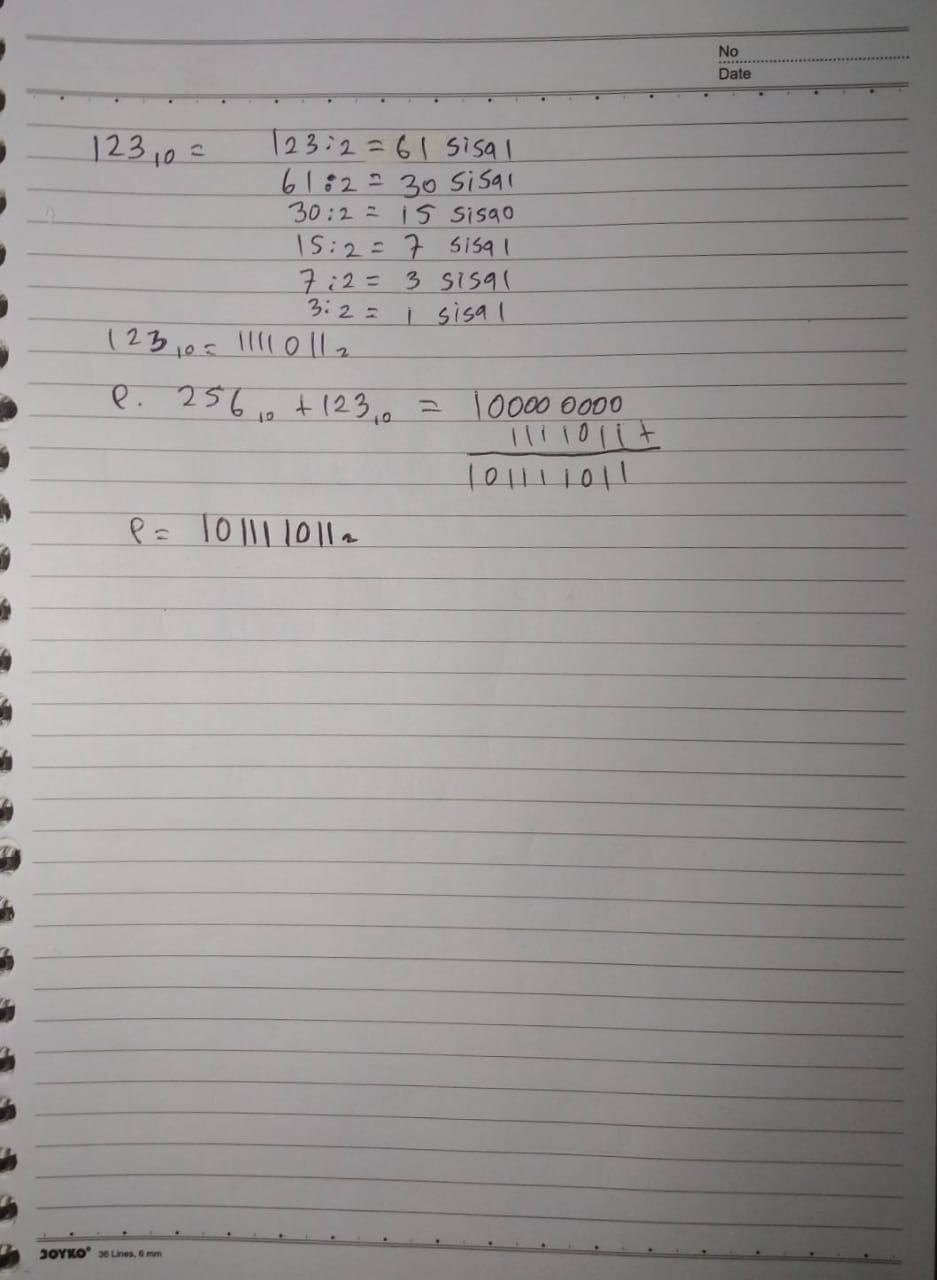 No
Date
123₁₀ = 123:2 = 61 sisa 1
61:2 = 30 sisa 1
30:2 = 15 sisa 0
15:2 = 7 sisa 1
7:2 = 3 sisa 1
3:2 = 1 sisa 1
123₁₀ = 1111011₂
P. 256₁₀ + 123₁₀ = 100000000
1111011 +
101111011
P = 101111011₂
JOYKO® 36 Lines, 6 mm